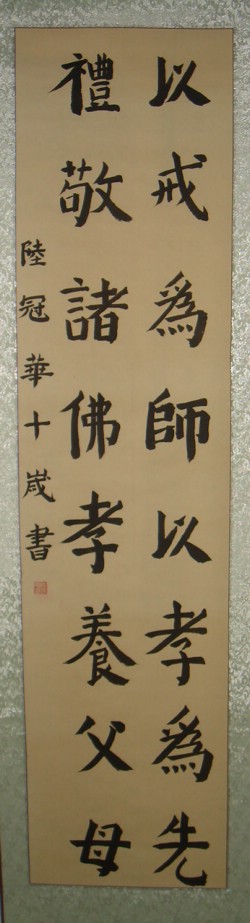 以戒為師以孝為先
禮敬諸佛孝養父母
陸冠華十歲書